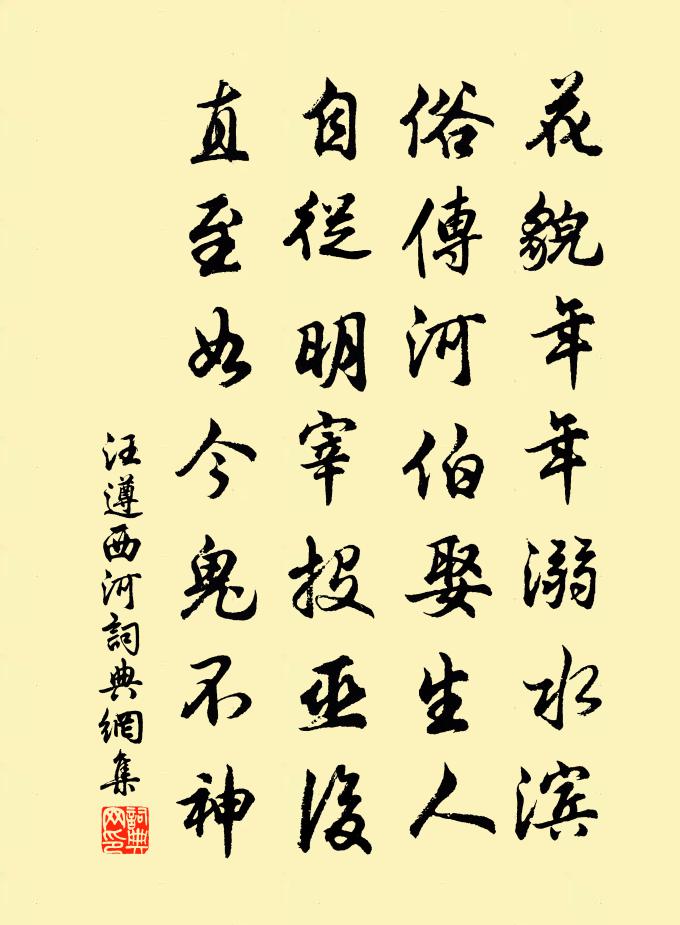 花貌年年溺水滨
俗傳河伯娶生人
自從明宰投巫後
直至如今鬼不神
汪遵西河詞典網集
詞典网印